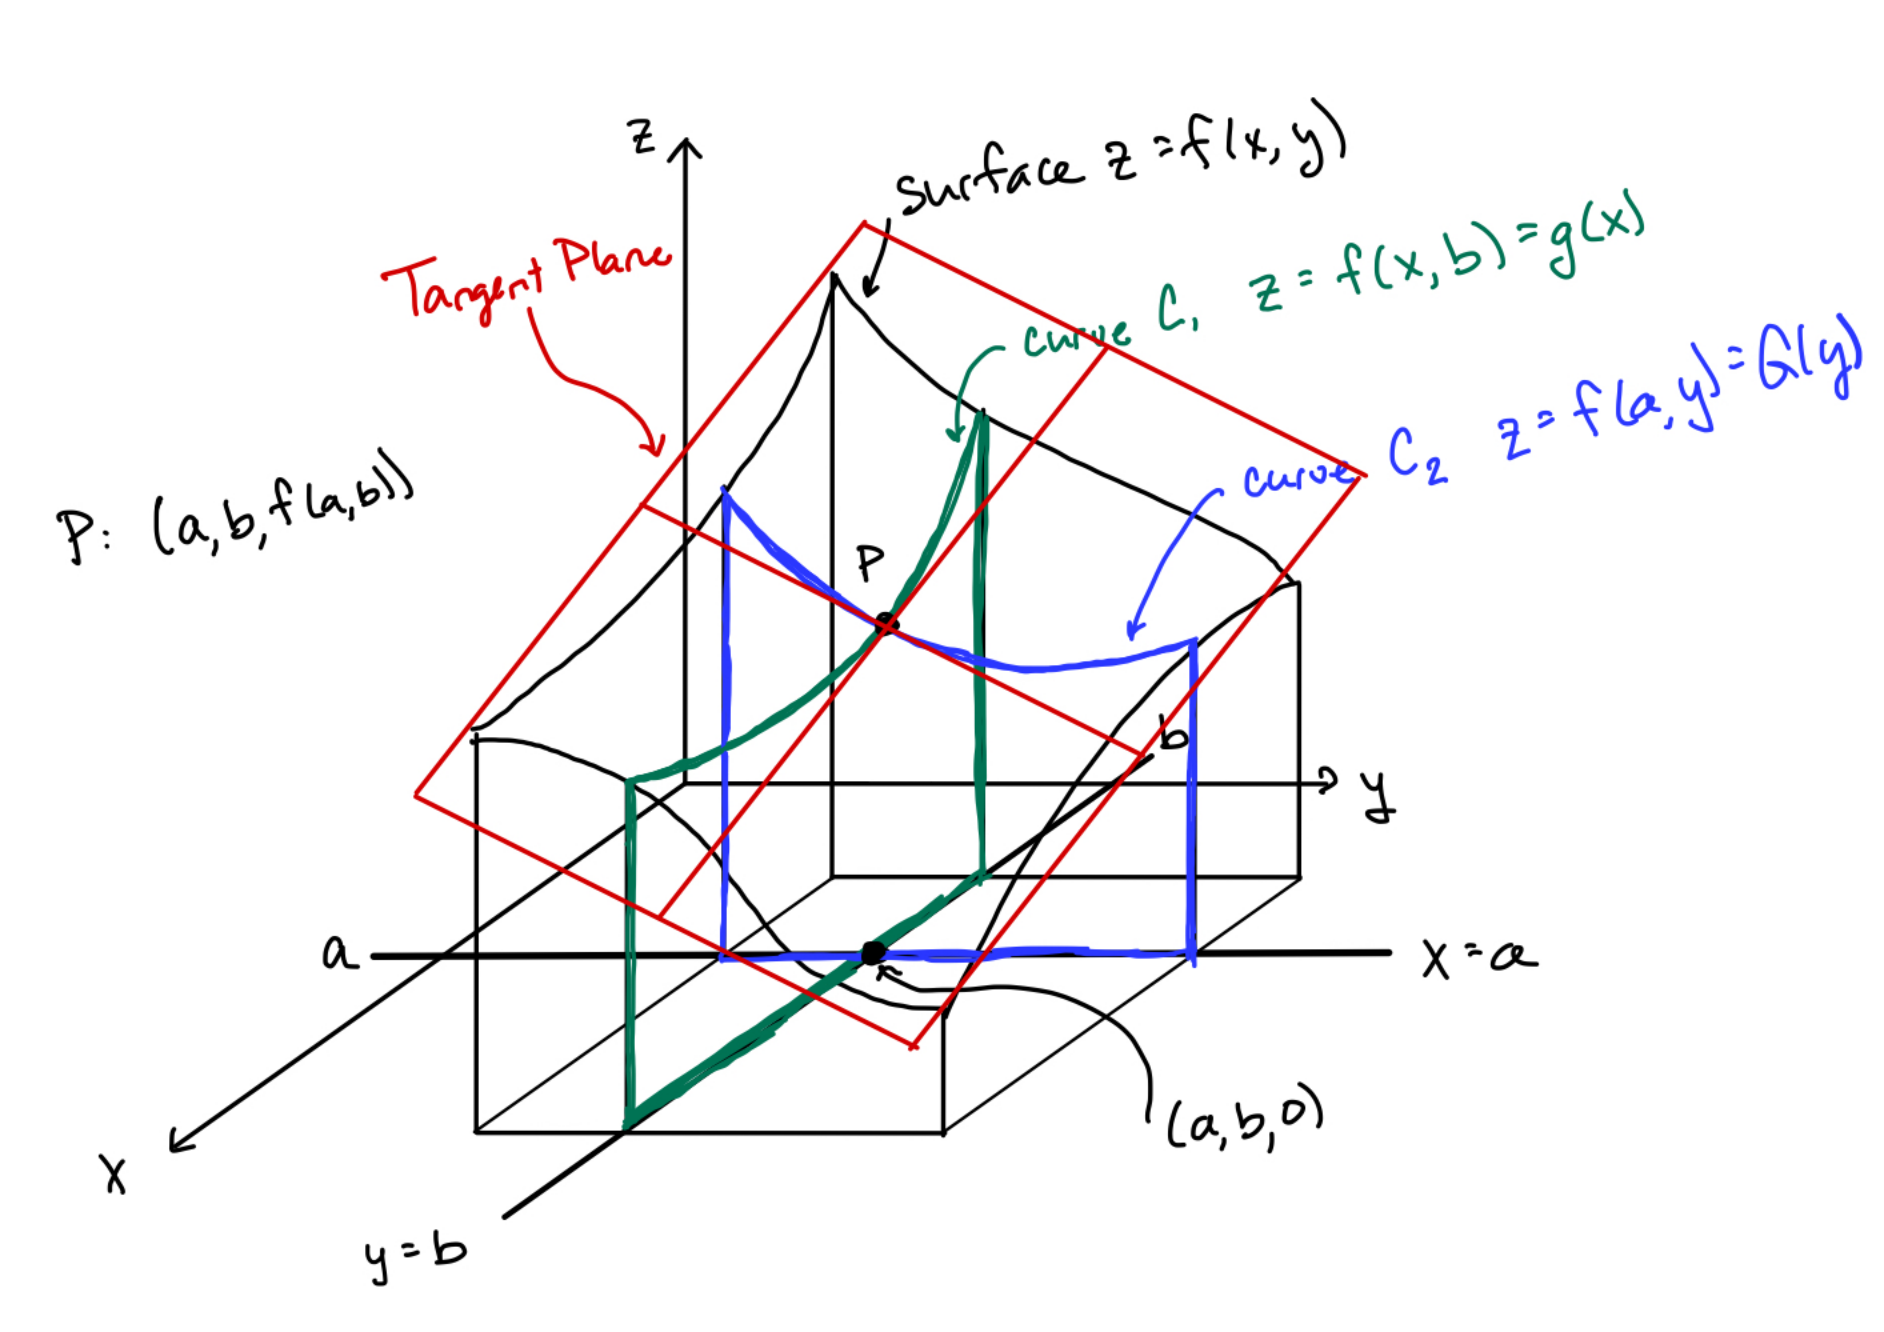 z
surface z = f(x, y)
Tangent Plane
curve C₁ z = f(x, b) = g(x)
curve C₂ z = f(a, y) = G(y)
P: (a, b, f(a, b))
P
b
y
a
x = a
(a, b, 0)
x
y = b